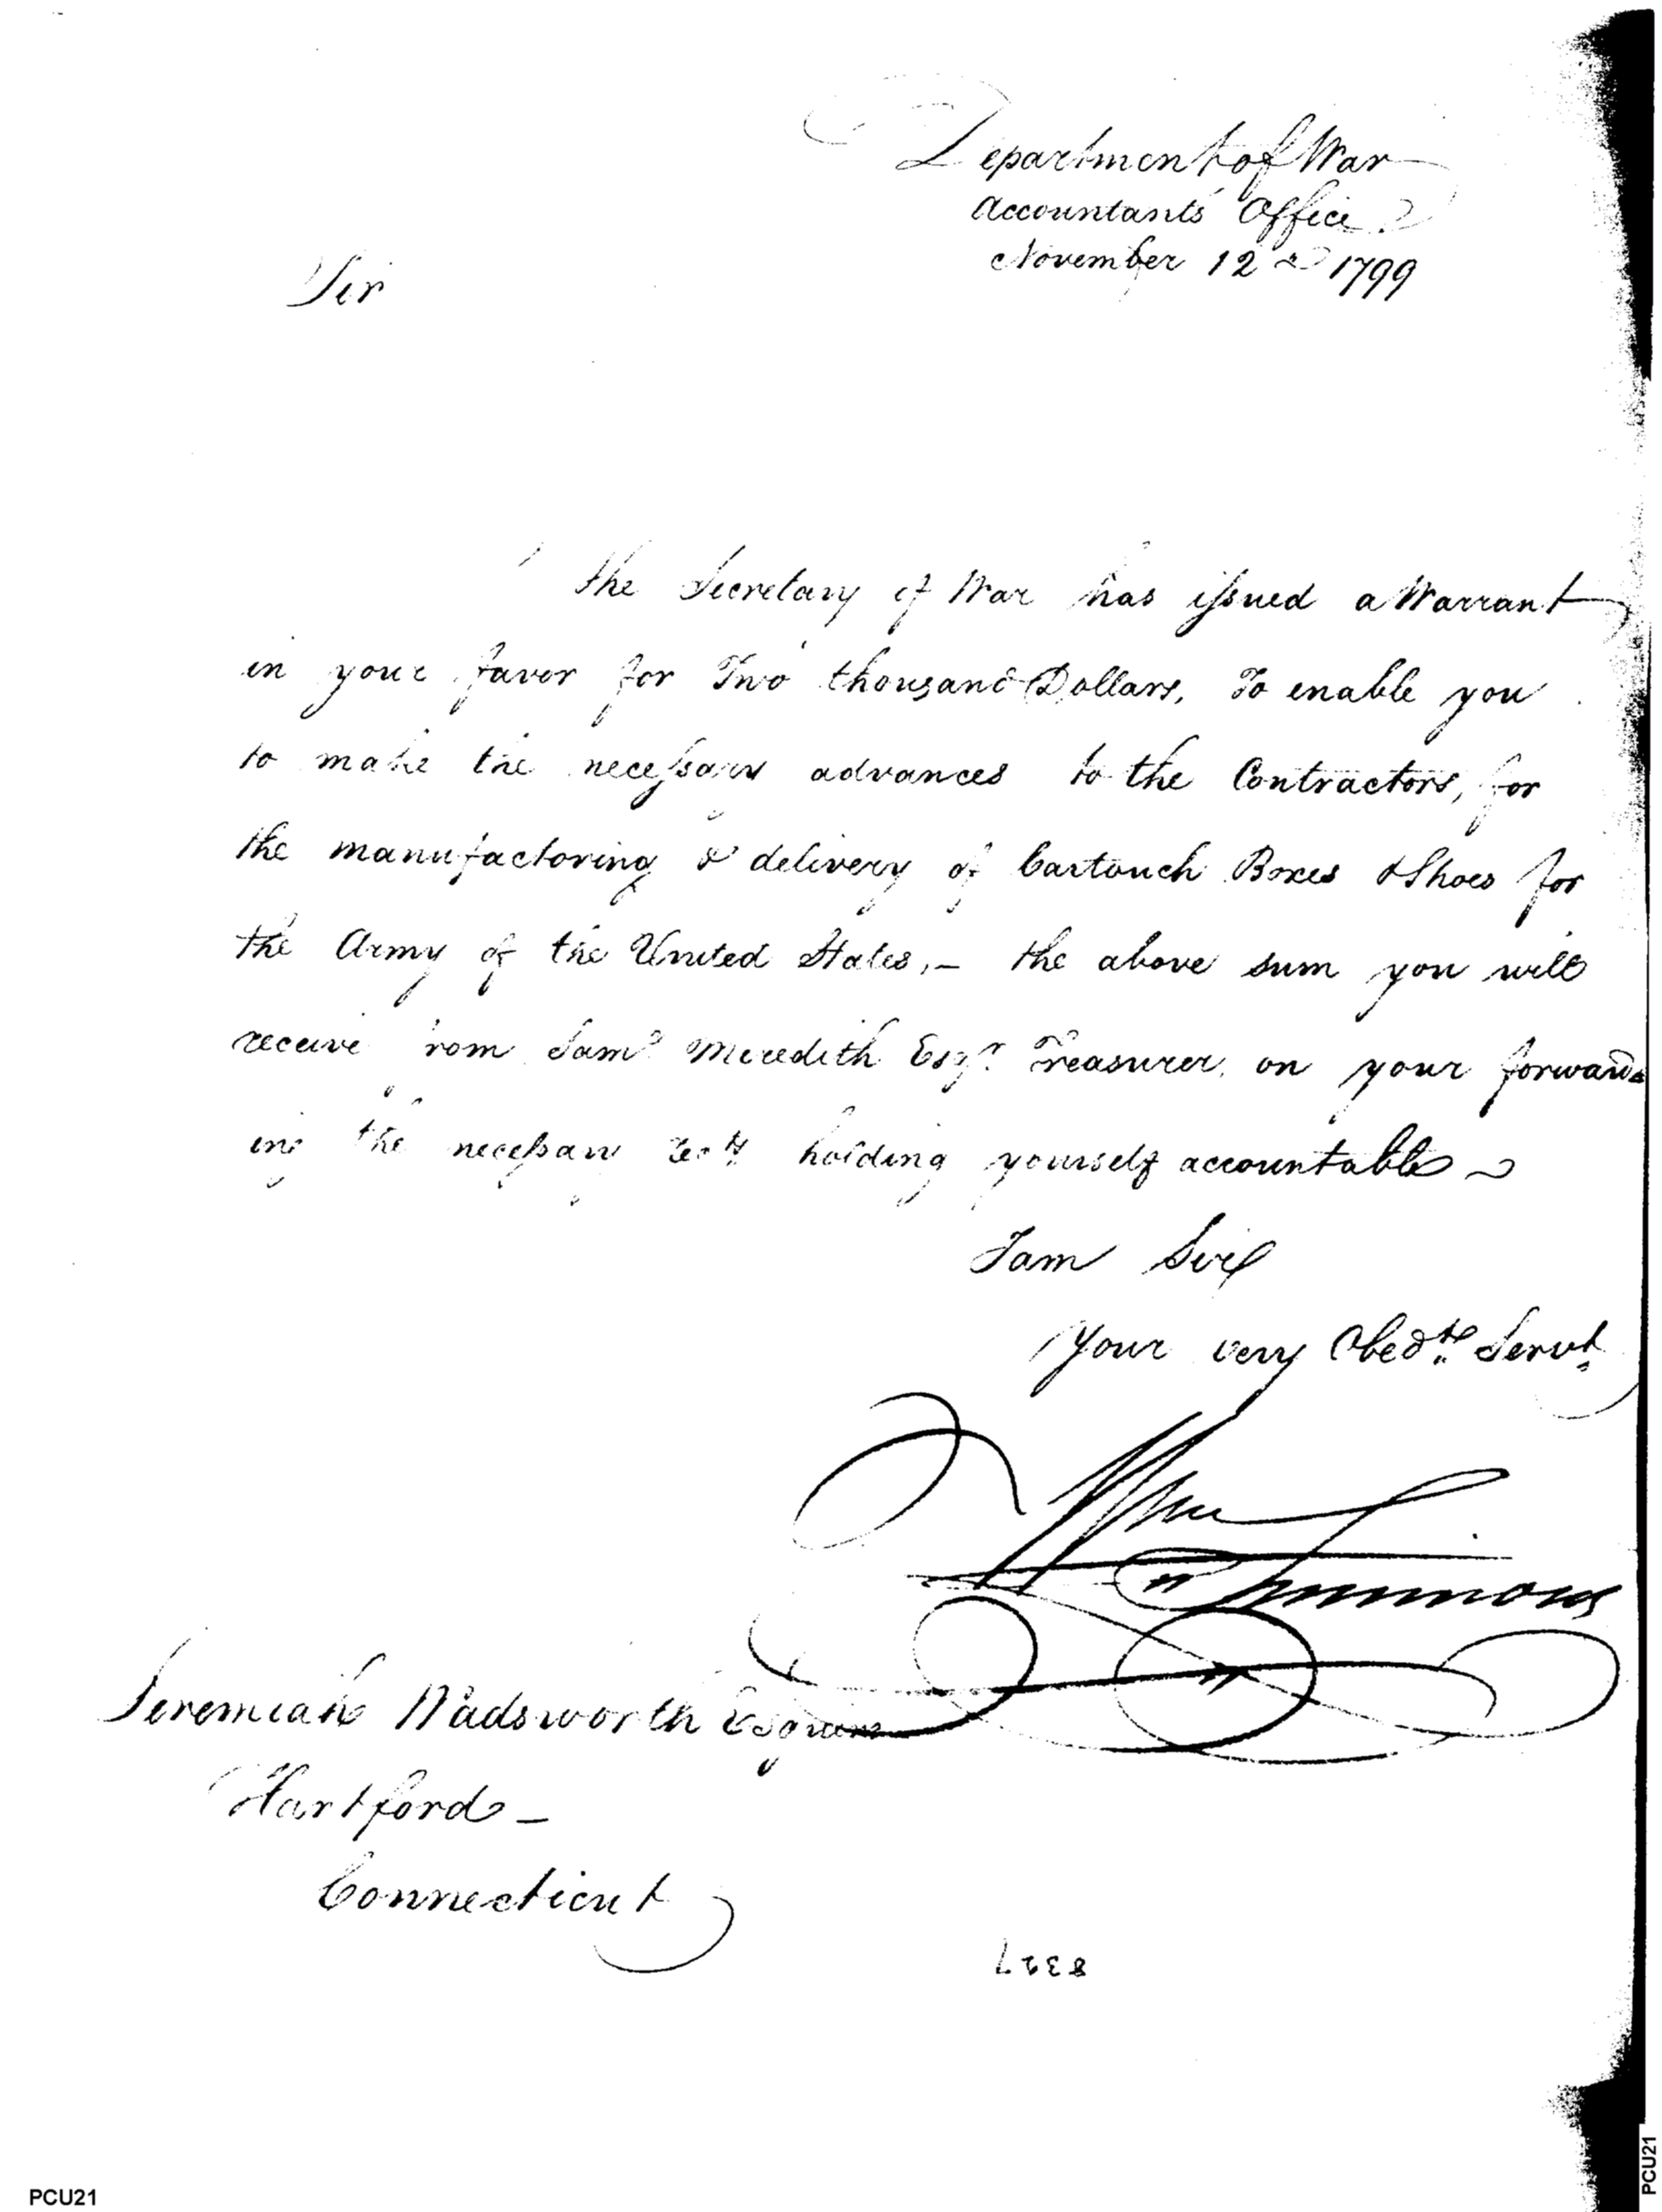 Department of War
Accountants Office
November 12 1799
Sir
The Secretary of War has issued a Warrant
in your favor for Two thousand Dollars, To enable you
to make the necessary advances to the Contractors, for
the manufactoring & delivery of Cartouch Boxes & Shoes for
the Army of the United States, – the above sum you will
receive from Saml Meredith Esqr. Treasurer, on your forward
ing the necessary rects holding yourself accountable
I am Sir
Your very Obedt. Servt
Wm Simmons
Jeremiah Wadsworth Esquire
Hartford –
Connecticut
PCU21
PCU21